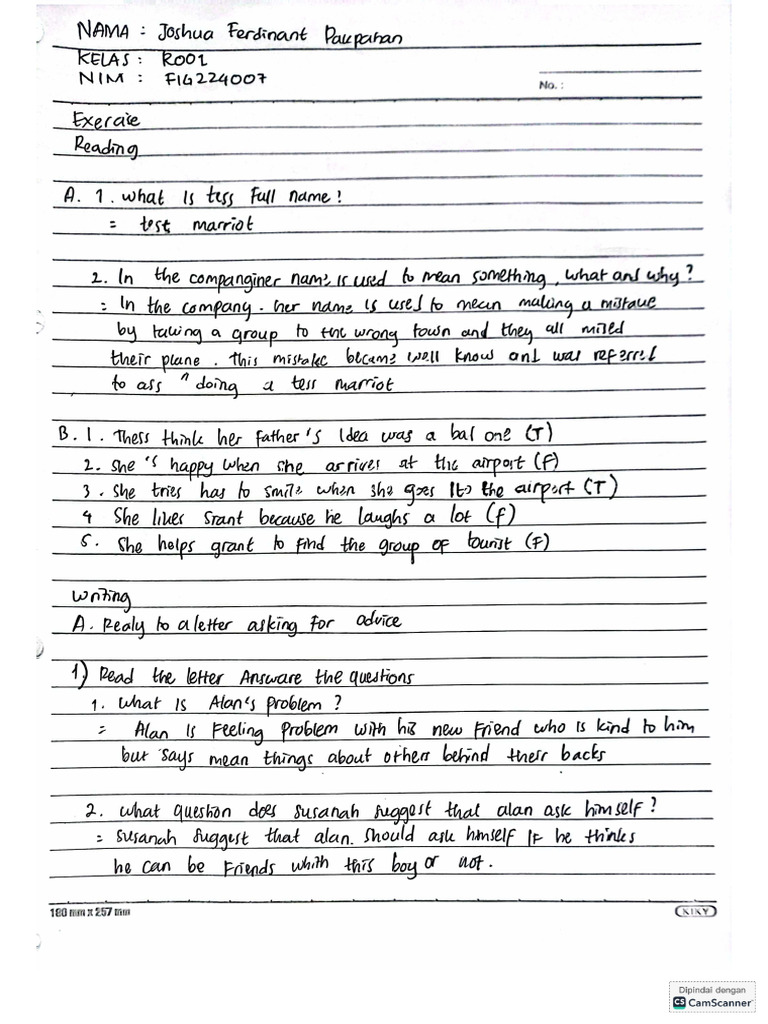 NAMA : Joshua Ferdinant Pakpahan
KELAS : R001
NIM : F1G224007
No. :
Exercise
Reading
A. 1. what Is tess Full name?
= test marriot
2. In the companginer name is used to mean something, what and why?
= In the company. her name is used to mean making a mistake
by taking a group to the wrong town and they all mised
their plane. This mistake became well know and was referrel
to ass "doing a tess marriot
B. 1. Thess think her father's Idea was a bal one (T)
2. She 's happy when she arrives at the airport (F)
3. She tries has to smile when she goes Ito the airport (T)
4 She likes Srant because he laughs a lot (f)
5. She helps grant to find the group of tourist (F)
Writing
A. Realy to a letter asking for advice
1) Read the letter Answare the questions
1. what Is Alan's problem ?
= Alan Is Feeling problem with his new Friend who is kind to him
but says mean things about others behind their backs
2. what question does susanah suggest that alan ask himself?
= susanah suggest that alan. should ask hmself If he thinks
he can be Friends whith this boy or not.
180 mm X 257 mm
KIKY
Dipindai dengan
CS CamScanner